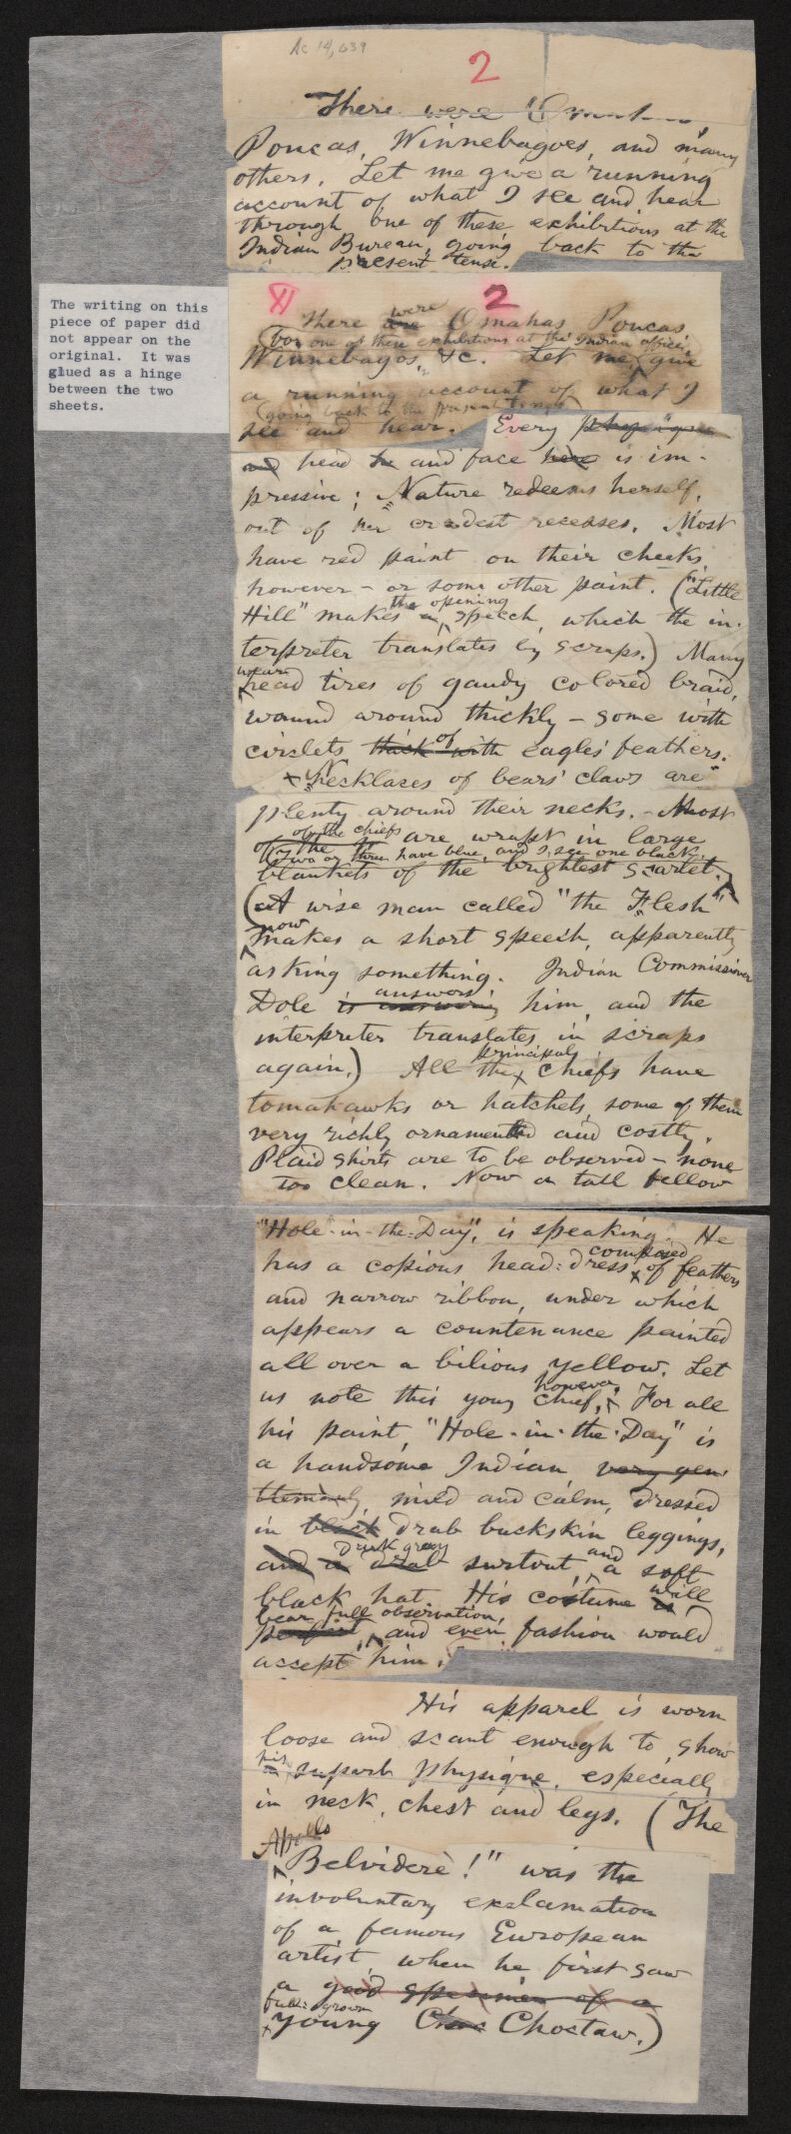 Ac 14,639
2
There were Omahas,
Poncas, Winnebagoes, and many
others. Let me give a running
account of what I see and hear
through one of these exhibitions at the
Indian Bureau, going back to the
present tense.
The writing on this
piece of paper did
not appear on the
original. It was
glued as a hinge
between the two
sheets.
2
were
There are Omahas Poncas
(for one of these exhibitions at the Indian office)
Winnebagos, &c. Let me give
a running account of what I
(going back to the present tense)
see and hear. Every
and head and face here is im-
pressive; Nature redeems herself,
out of her crudest recesses. Most
have red paint on their cheeks,
however - or some other paint. ("Little
the opening
Hill" makes a speech, which the in-
terpreter translates by scraps.) Many
wear
head tires of gaudy colored braid,
wound around thickly - some with
of
circlets thick with eagles' feathers.
Necklaces of bears' claws are
plenty around their necks. - Most
of the chiefs
of the are wrapt in large
two or three have blue, and I see one black.
blankets of the brightest scarlet.
(A wise man called "the Flesh"
now
makes a short speech, apparently
asking something. Indian Commissioner
answers
Dole is answering him, and the
interpreter translates in scraps
principal
again.) All the chiefs have
tomahawks or hatchets, some of them
very richly ornamented and costly.
Plaid shirts are to be observed - none
too clean. Now a tall fellow
"Hole-in-the-Day", is speaking. He
composed
has a copious head-dress of feathers
and narrow ribbon, under which
appears a countenance painted
all over a bilious yellow. Let
however,
us note this young chief. For all
his paint, "Hole-in-the-Day" is
a handsome Indian very gen-
tlemanly, mild and calm, dressed
in black drab buckskin leggings,
dark gray and
and a drab surtout, a soft
black hat. His costume will
is
bear full observation,
perfect, and even fashion would
accept him.
His apparel is worn
loose and scant enough to show
his
superb physique, especially
in neck, chest and legs. (The
Apollo
Belvidere!" was the
involuntary exclamation
of a famous European
artist when he first saw
a good specimen of a
full-grown
young Choc Choctaw.)